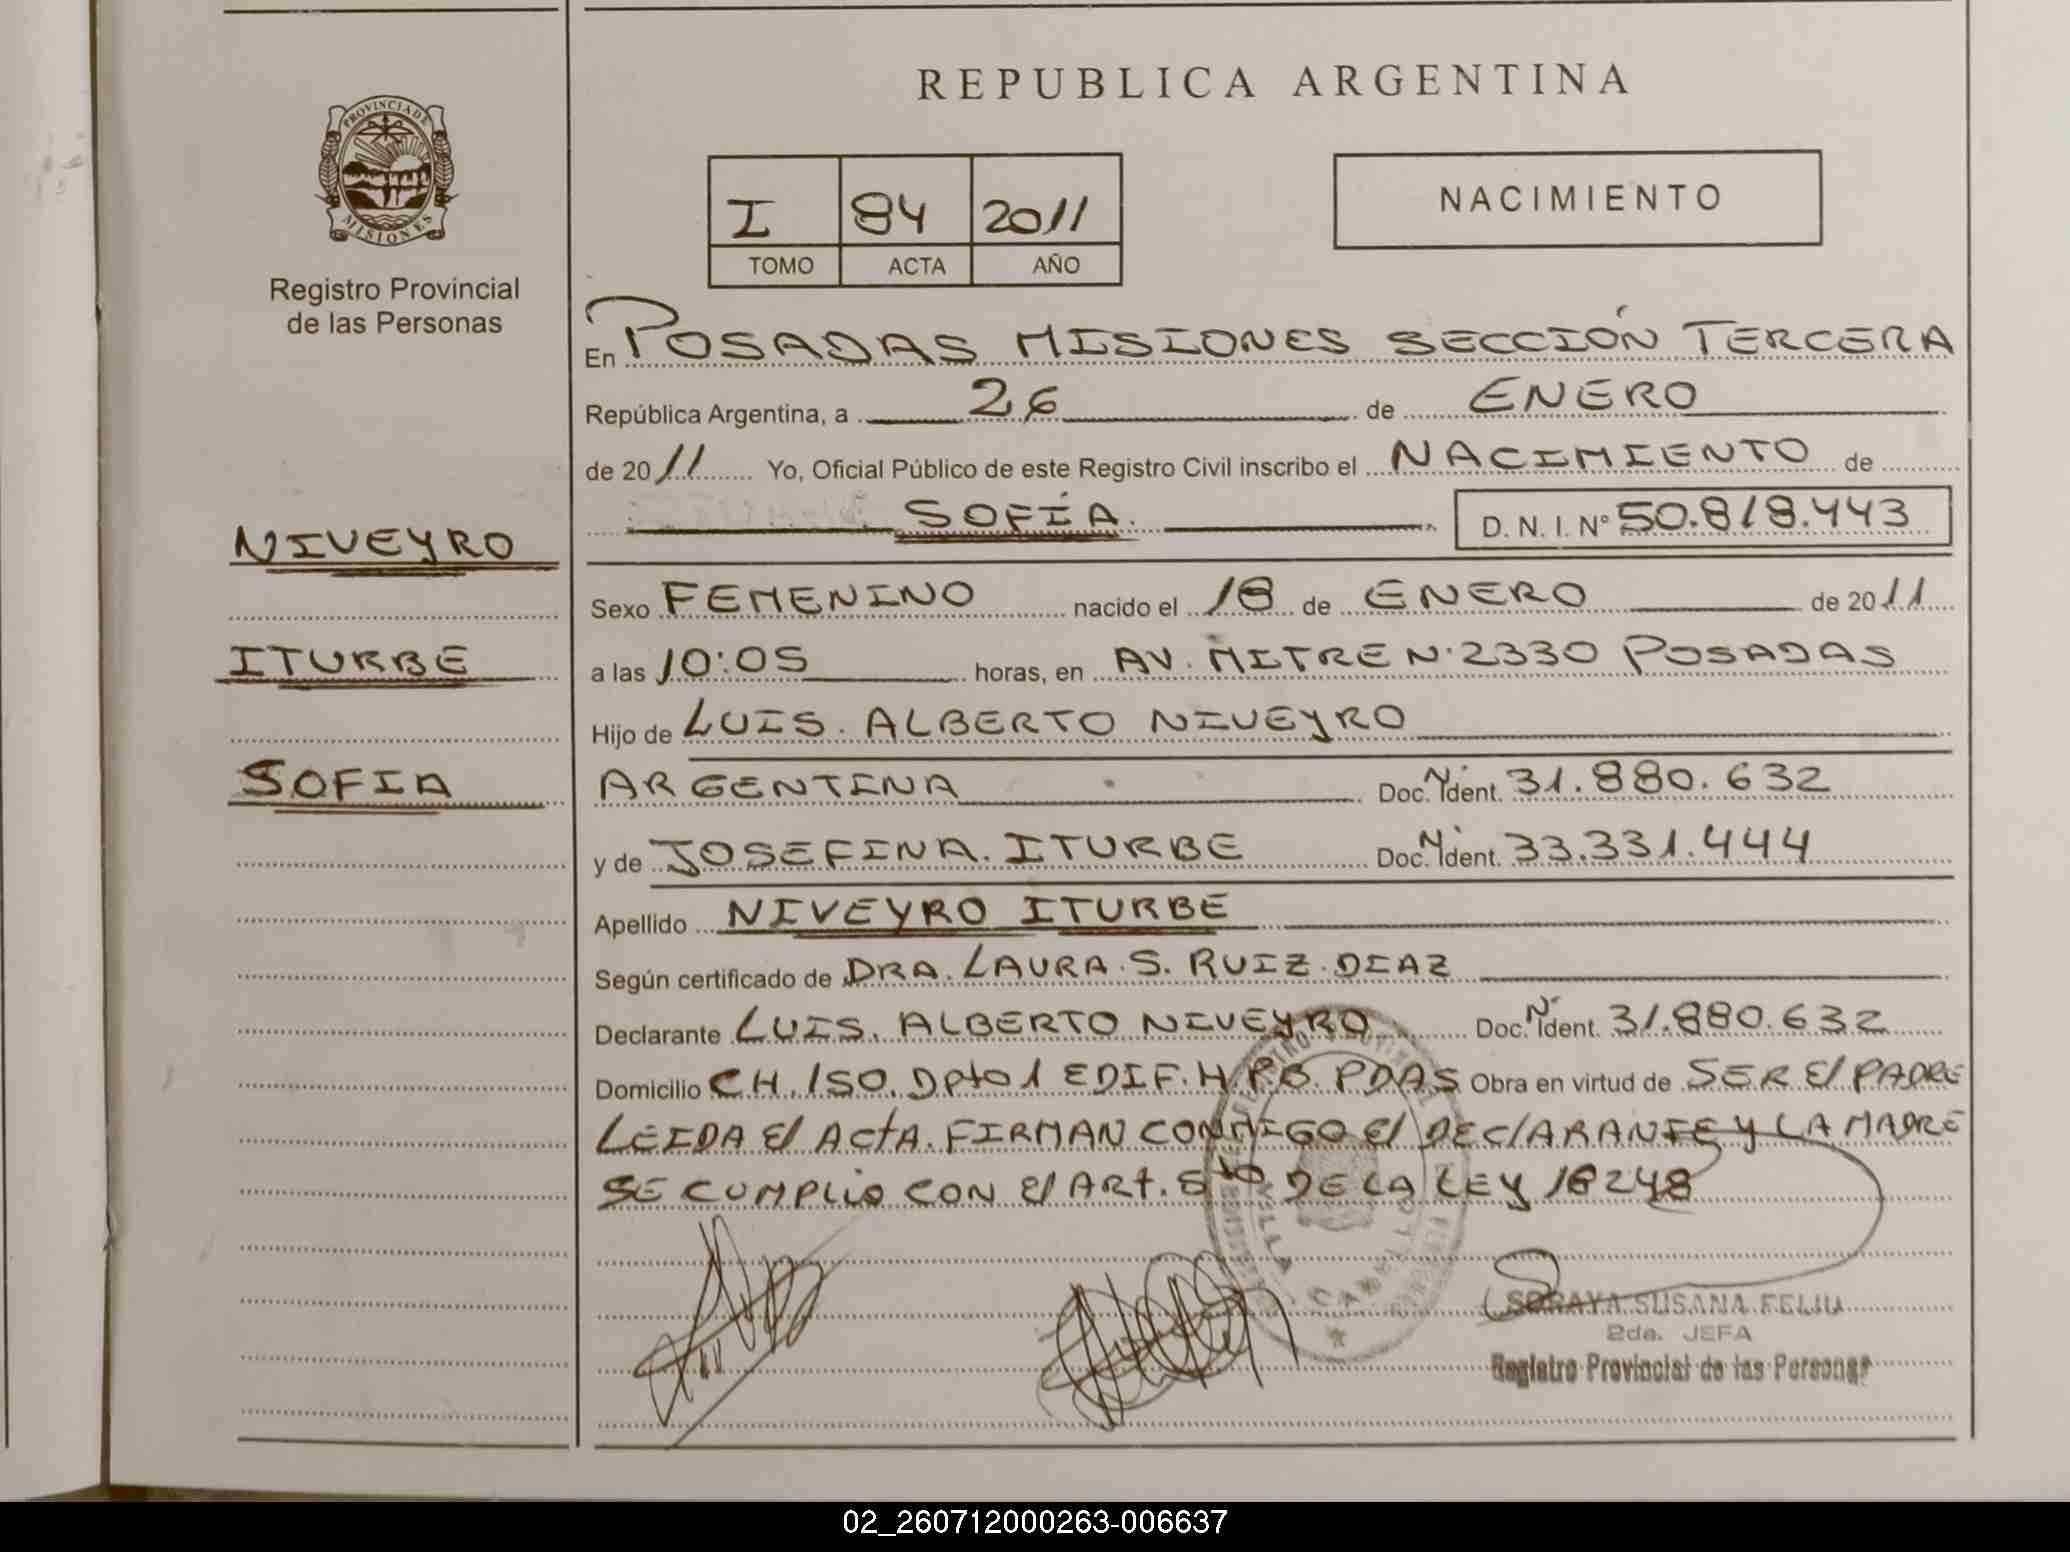 PROVINCIA DE
MISIONES
Registro Provincial
de las Personas
NIVEYRO
ITURBE
SOFIA
REPUBLICA ARGENTINA
I 84 2011
TOMO ACTA AÑO
NACIMIENTO
En POSADAS MISIONES SECCIÓN TERCERA
República Argentina, a 26 de ENERO
de 2011 Yo, Oficial Público de este Registro Civil inscribo el NACIMIENTO de
SOFÍA. D. N. I. Nº 50.818.443
Sexo FEMENINO nacido el 18 de ENERO de 2011
a las 10:05 horas, en AV. MITRE N· 2330 POSADAS
Hijo de LUIS. ALBERTO NIVEYRO
ARGENTINA Doc. Nº Ident. 31.880.632
y de JOSEFINA. ITURBE Doc. Nº Ident. 33.331.444
Apellido NIVEYRO ITURBE
Según certificado de DRA. LAURA. S. RUIZ. DIAZ
Declarante LUIS. ALBERTO NIVEYRO Doc. Nº Ident. 31.880.632
Domicilio CH. 150. Dpto 1 EDIF. H. P.B. PDAS Obra en virtud de SER El PADRE
LEIDA El ACtA. FIRMAN CONMIGO El DEClARANTE Y LA MADRE
SE CUMPLIO CON El ARt. 5to DE LA LEY 18248
SORAYA SUSANA FELIU
2da. JEFA
Registro Provincial de las Personas
02_260712000263-006637